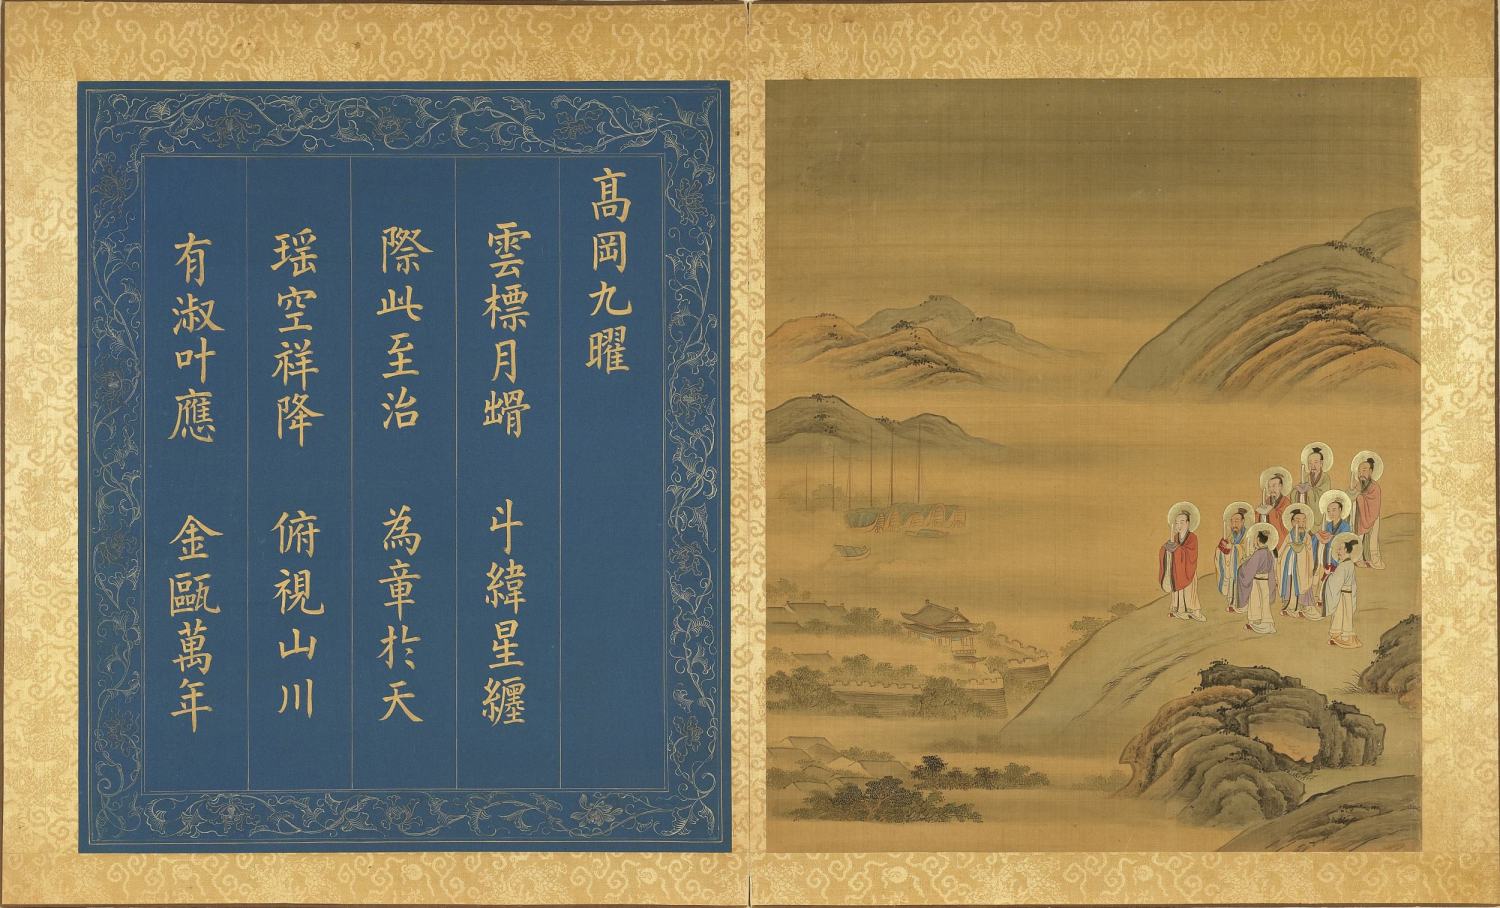 高岡九曜
雲標月䎃 斗緯星纏
際此至治 為章於天
瑶空祥降 俯視山川
有淑叶應 金甌萬年